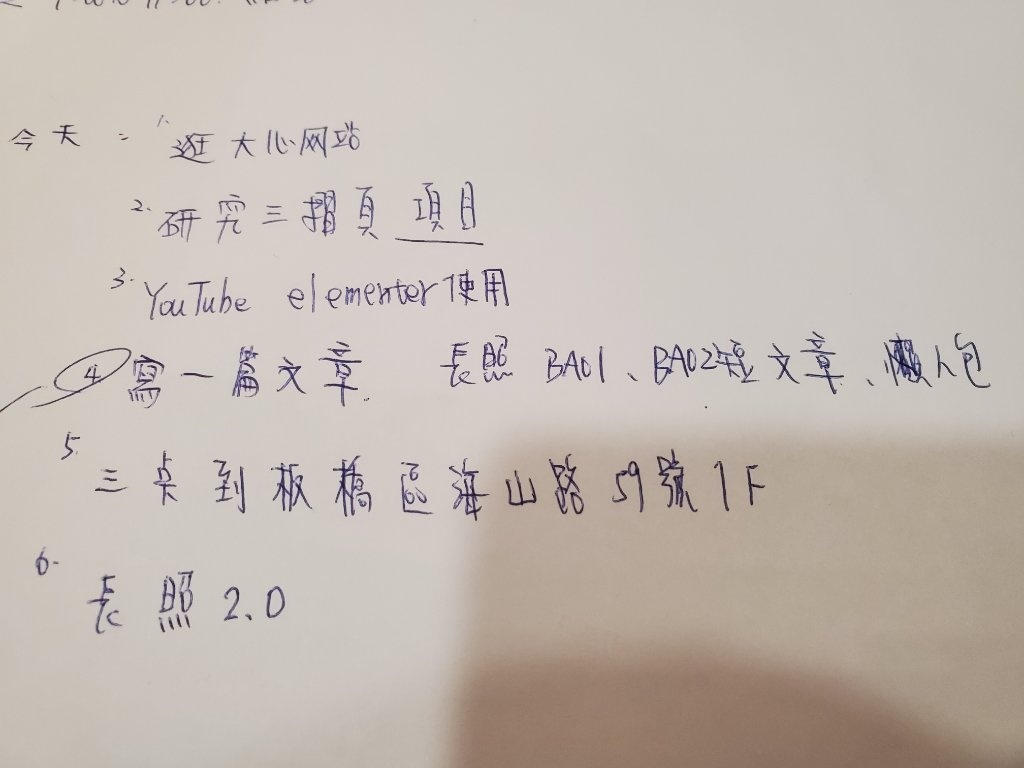 今天: 1. 逛大心网站
2. 研究三摺頁 項目
3. YouTube elementer使用
4 寫一篇文章. 長照 BA01、BA02短文章、懶人包
5. 三桌到板橋區海山路59號1F
6. 長照2.0